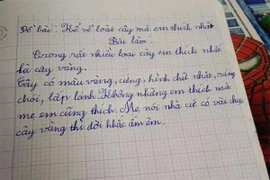 Đề bài: Kể về loài cây mà em thích nhất
Bài làm
Trong rất nhiều loại cây em thích nhất
là cây vàng.
Cây có màu vàng, cứng, hình chữ nhật, sáng
chói, lấp lánh. Không những em thích mà
mẹ em cũng thích. Mẹ nói nhà cứ có vài chục
cây vàng thì đời khắc ấm êm.